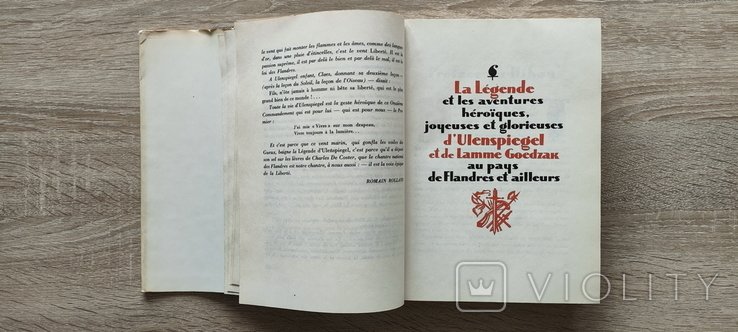 le vent qui fait monter les flammes et les âmes, comme des langues
d'or, dans une pluie d'étincelles, c'est le vent Liberté. Il est la
passion suprême, il est par delà le bien et par delà le mal, il est la
loi des Flandres.
A Ulenspiegel enfant, Claes, donnant sa deuxième leçon —
(après la leçon du Soleil, la leçon de l'Oiseau) — disait :
Fils, n'ôte jamais à homme ni bête sa liberté, qui est le plus
grand bien de ce monde !...
Toute la vie d'Ulenspiegel est la geste héroïque de ce Onzième
Commandement qui est pour lui — qui est pour nous — le Pre-
mier :
J'ai mis « Vivre » sur mon drapeau,
Vivre toujours à la lumière...
Et c'est parce que ce vent marin, qui gonfla les voiles des
Gueux, baigne la Légende d'Ulenspiegel, c'est parce qu'il a déposé
son sel sur les livres de Charles De Coster, que le chantre national
des Flandres est chantre nôtre, à nous aussi : — il est la voix épique
de la Liberté.
ROMAIN ROLLAND
La Légende
et les aventures
héroïques,
joyeuses et glorieuses
d'Ulenspiegel
et de Lamme Goedzak
au pays
de flandres et ailleurs
VIOLITY